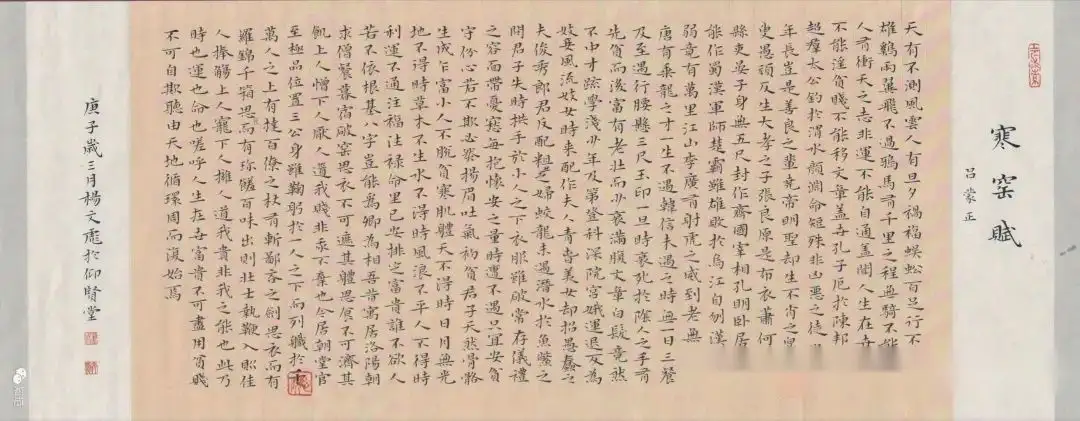 寒窑賦
吕蒙正
天有不測風雲人有旦夕禍福蜈蚣百足行不
雄鷄兩翼飛不過鴉馬有千里之程無騎不能
人有衝天之志非運不能自通蓋聞人生在世
不能淫貧賤不能移文章蓋世孔子厄於陳邦
超羣太公釣於渭水顏淵命短殊非凶惡之徒
年長豈是善良之輩堯帝明聖却生不肖之兒
叟愚頑反生大孝之子張良原是布衣蕭何
縣吏晏子身無五尺封作齊國宰相孔明卧居
能作蜀漢軍師楚霸雖雄敗於烏江自刎漢
弱竟有萬里江山李廣有射虎之威到老無
唐有乘龍之才一生不遇韓信未遇之時無一日三餐
及至遇行腰懸三尺玉印一旦時衰死於陰人之手有
先貧而後富有老壯而少衰滿腹文章白髮竟然
不中才疏學淺少年及第登科深院宮娥運退反為
妓妾風流妓女時來配作夫人青春美女却招愚蠢之
夫俊秀郎君反配粗之婦蛟龍未遇潛水於魚鱉之
間君子失時拱手於小人之下衣服雖破常存儀禮
之容面帶憂愁每抱懷安之量時遭不遇只宜安貧
守份心若不欺必然揚眉吐氣初貧君子天然骨骼
生成乍富小人不脫貧寒肌體天不得時日月無光
地不得時草木不生水不得時風浪不平人不得時
利運不通注福注祿命里已安排定富貴誰不欲人
若不依根基八字豈能為卿為相吾昔寓居洛陽朝
求僧餐暮宿破窑思衣不可遮其體思食不可濟其
飢上人憎下人厭人道我賤非我不棄也今居朝堂官
至極品位置三公身雖鞠躬於一人之下而列職於千
萬人之上有撻百僚之杖有斬鄙吝之劍思衣而有
羅錦千箱思食而有珍饈百味出則壯士執鞭入則佳
人捧觴上人寵下人擁人道我貴非我之能也此乃
時也運也命也嗟呼人生在世富貴不可盡用貧賤
不可自欺聽由天地循環周而復始焉
庚子歲三月楊文彪於仰賢堂